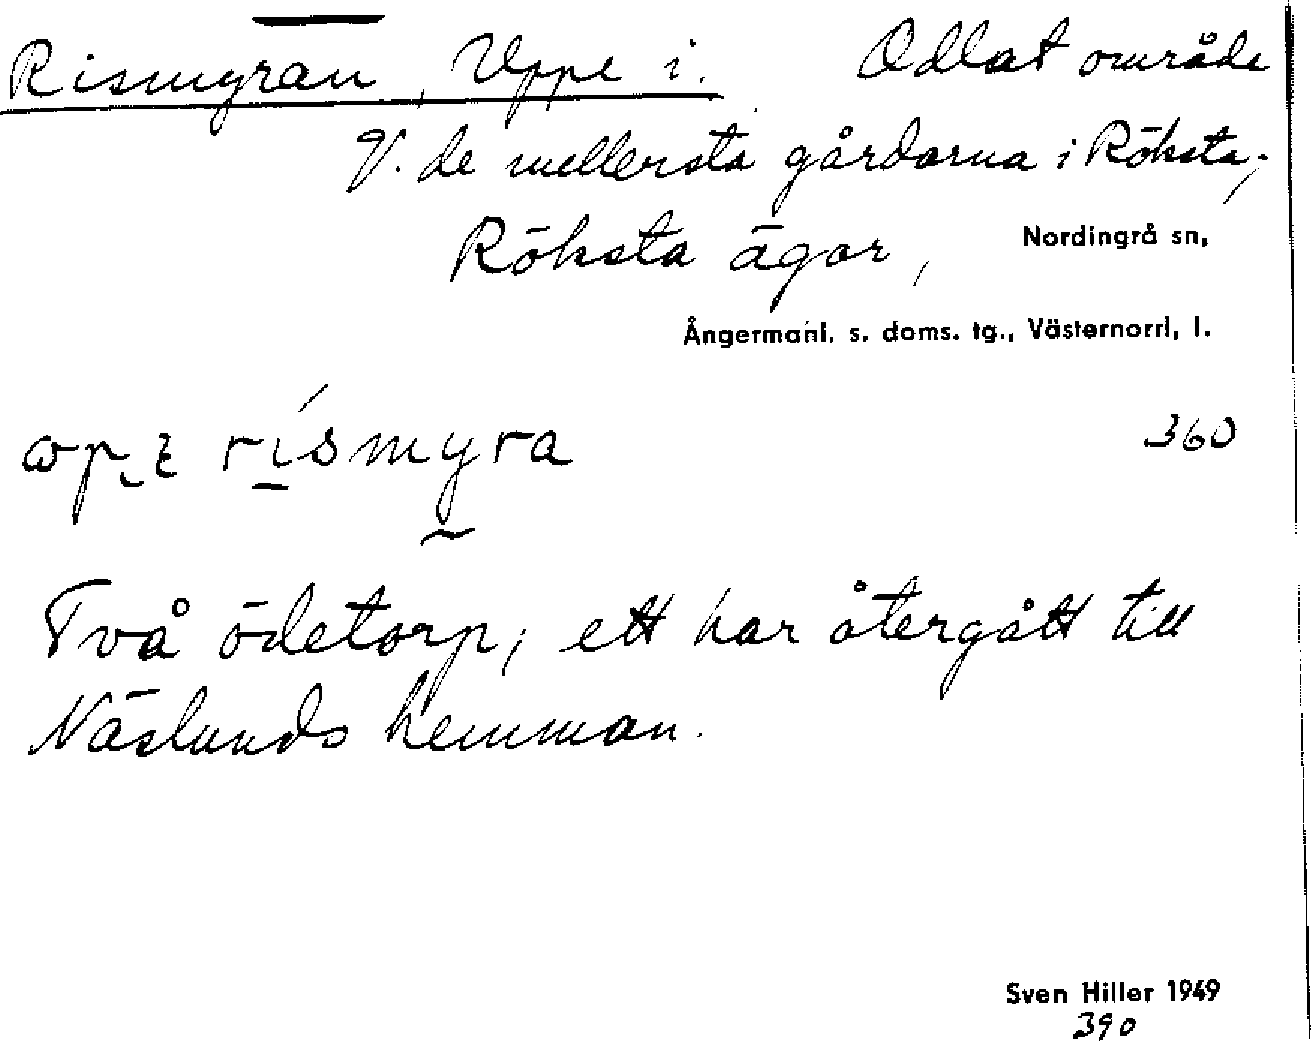 Rismyran, Uppe i. Odlat område
V. de mellersta gårdarna i Röksta;
Röksta ägor, Nordingrå sn,
Ångermanl. s. doms. tg., Västernorrl, l.
rismyra 360
Två ödetorp; ett har återgått till
Näslunds hemman.
Sven Hiller 1949
390